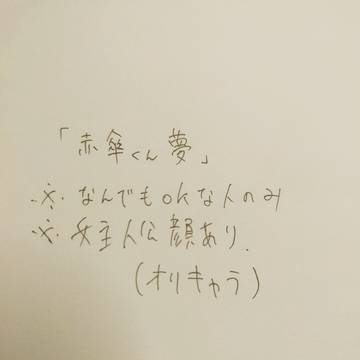 「赤傘くん夢」
※ なんでもokな人のみ
※ 女主人公顔あり.
(オリキャラ)